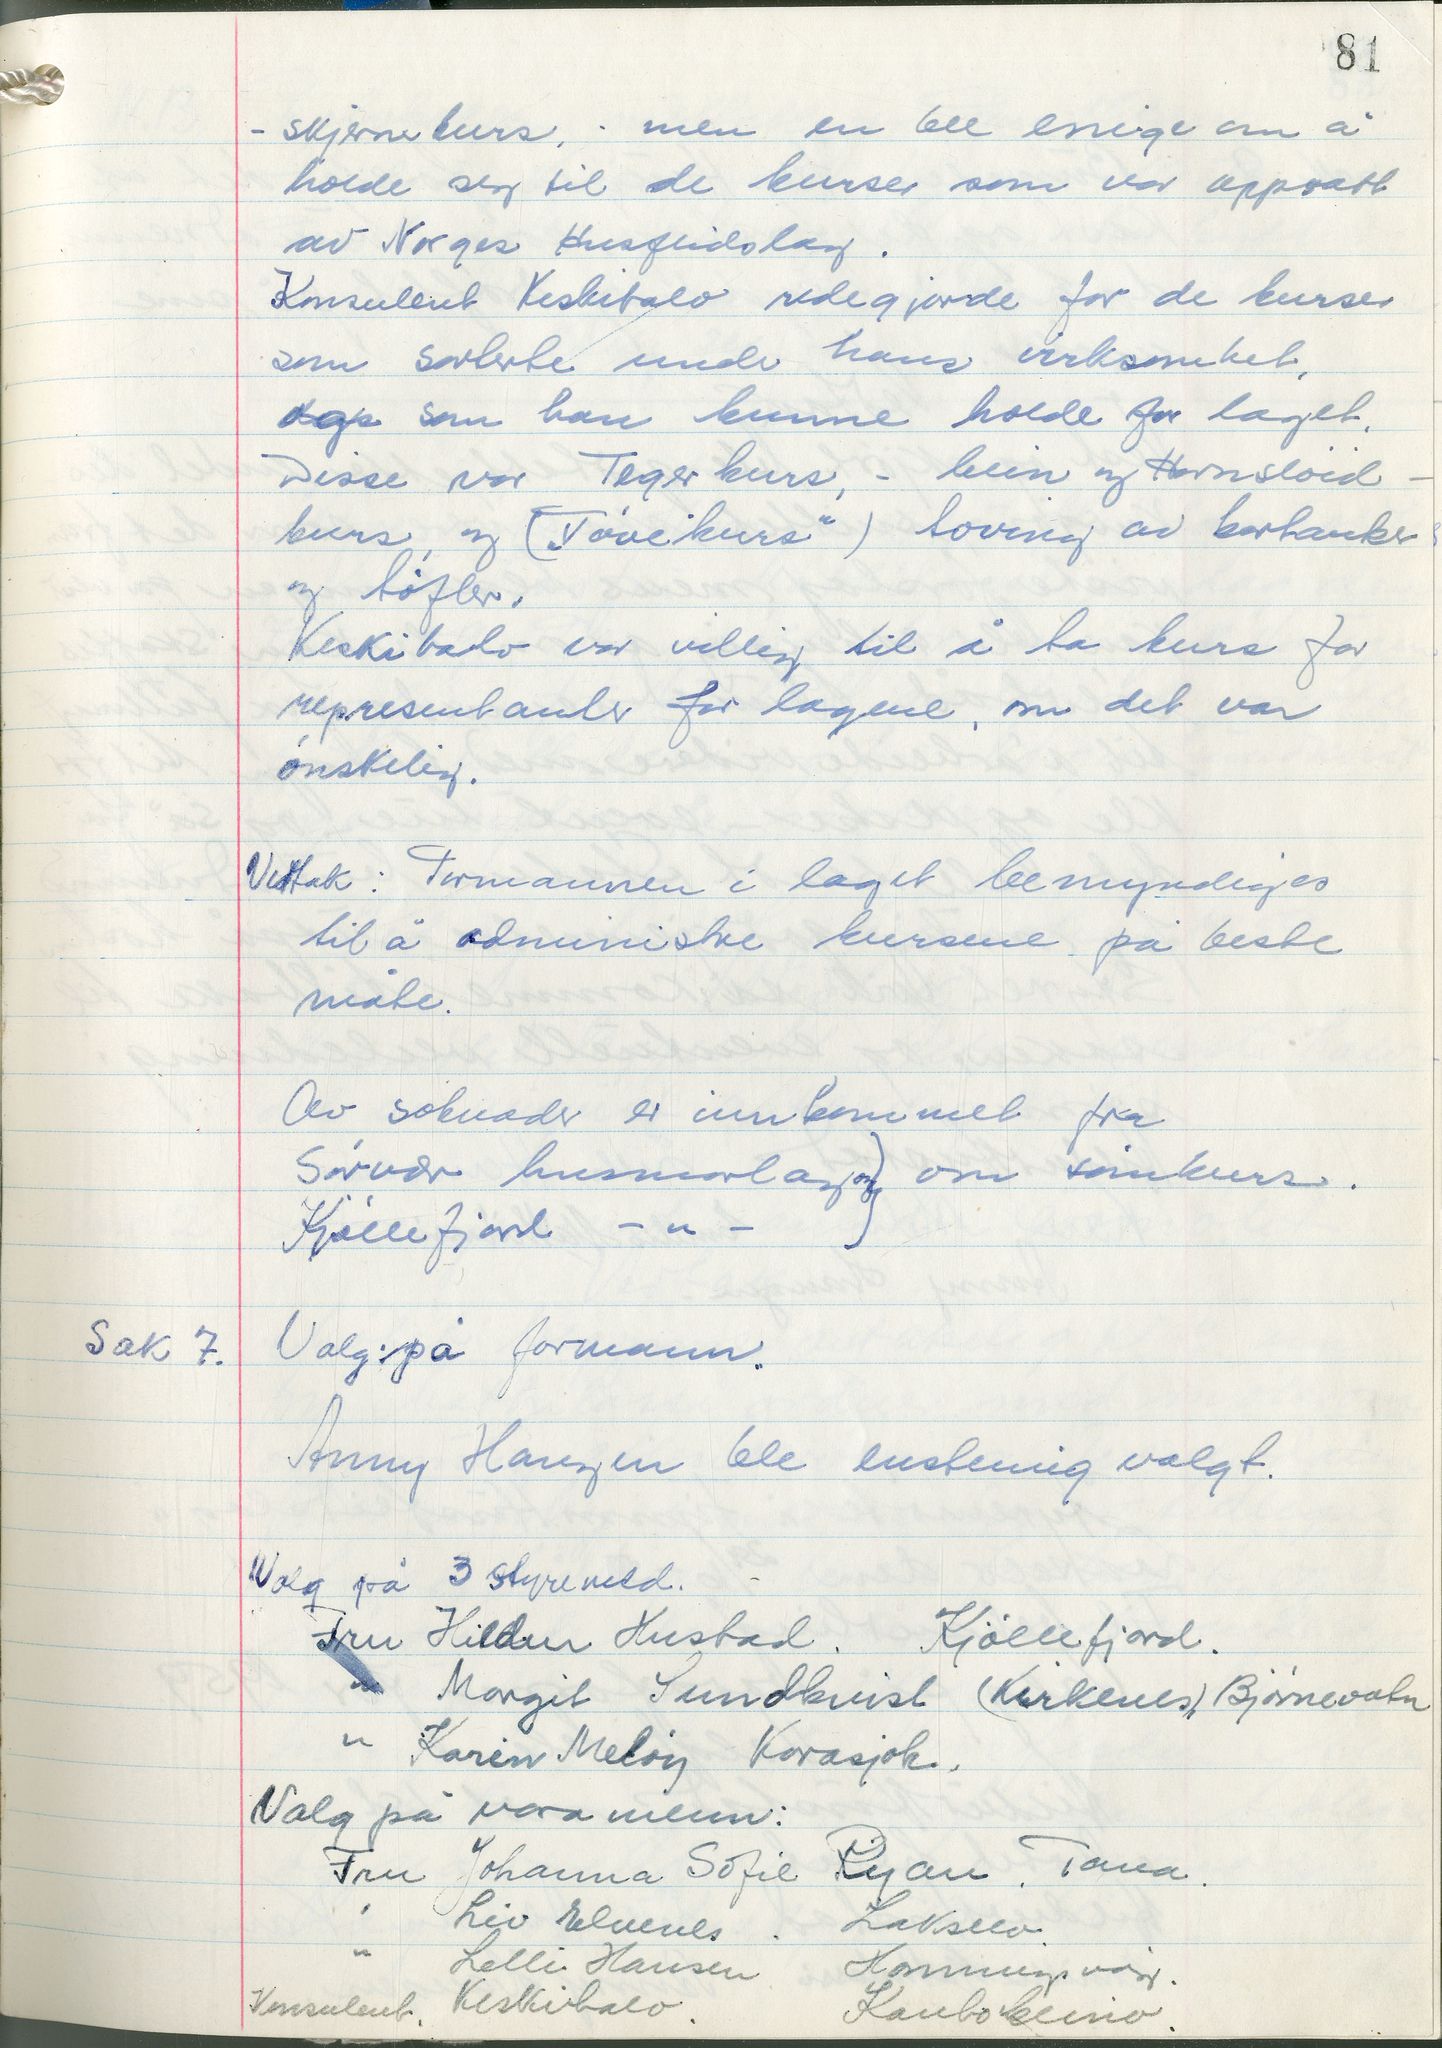 81
- skjermkurs, - men en ble enige om å
holde seg til de kurser som var oppsatt
av Norges Husflidslag.
Konsulent Keskitalo redegjorde for de kurser
som sorterte under hans virksomhet,
som han kunne holde for laget.
Disse var Tegerkurs, - bein og Hornslöid-
kurs, og ("Tövekurs") toving av kartanker
og töfler.
Keskitalo var villig til å ta kurs for
representanter for lagene, om det var
önskelig.
Vedtak: Formannen i laget bemyndiges
til å administre kursene på beste
måte.
Av söknader er innkommet fra
Sörvær husmorlag og) om sömkurs.
Kjöllefjord - " - )
Sak 7. Valg: på formann.
Anny Haugen ble enstemig valgt.
Valg på 3 styremed.
Fru Hildur Hustad. Kjöllefjord.
" Margit Sundkvist (Kirkenes), Björnevatn
" Karin Melöy Karasjok.
Valg på vara menn:
Fru Johanna Sofie Ryan. Tana.
" Liv Elvenes. Lakselv.
" Lelli Hansen Honningsvåg.
Konsulent. Keskitalo. Kautokeino.